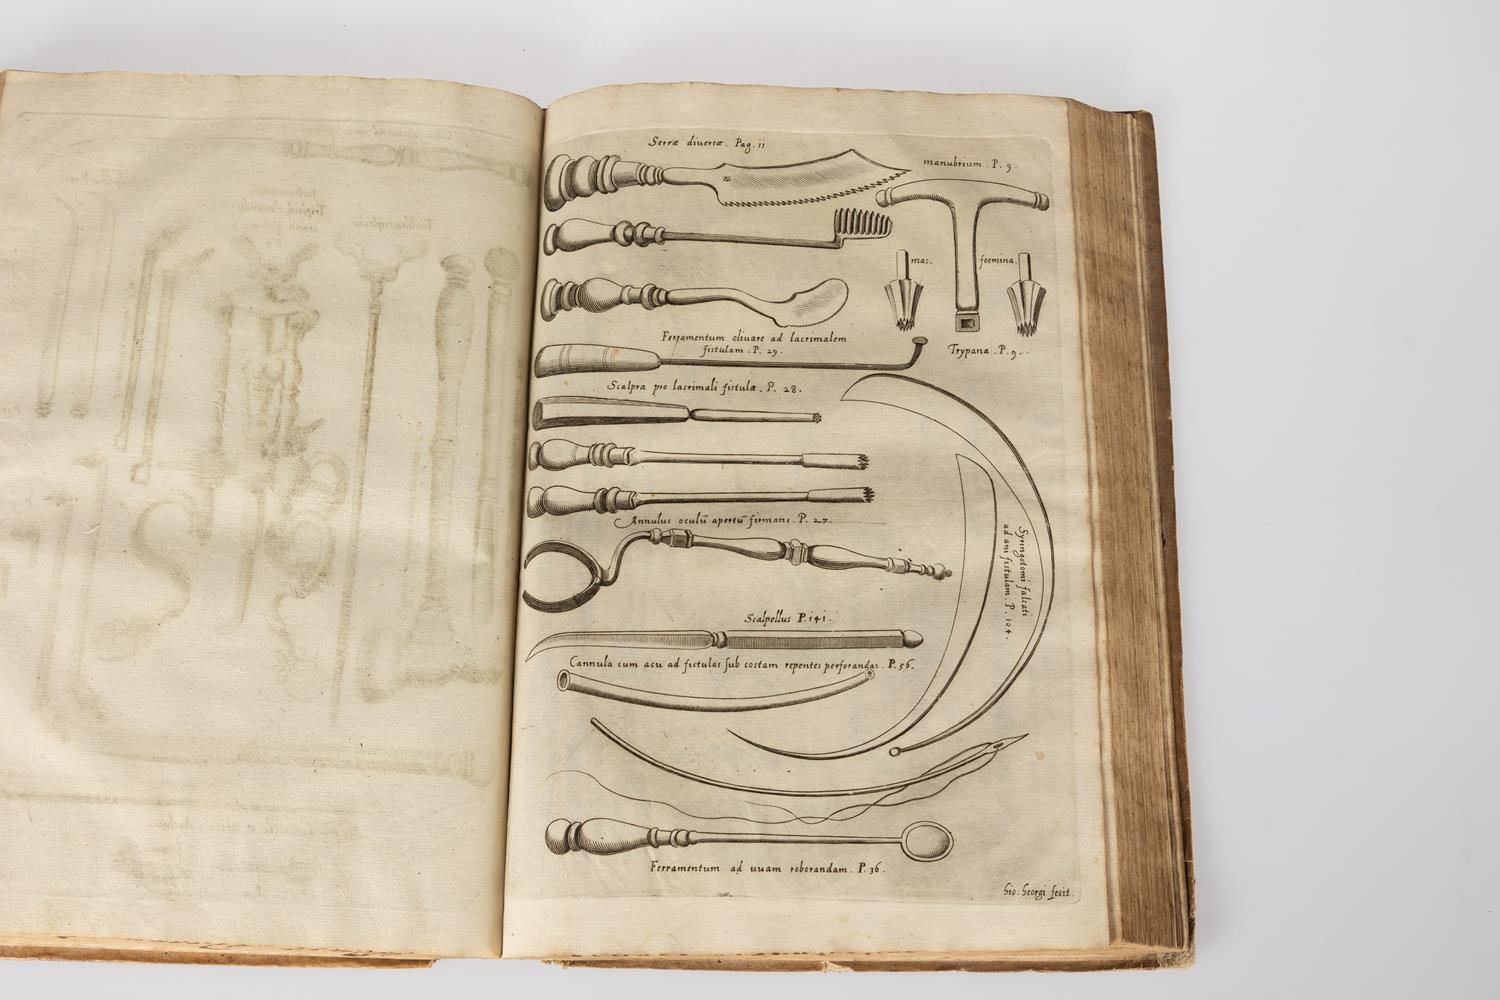 Serræ diversæ. Pag. ii
manubrium. P. 9.
mas.
foemina.
Trypana. P. 9.
Ferramentum oliuare ad lacrimalem
fistulam. P. 29.
Scalpra pro lacrimali fistula. P. 28.
Annulus oculū apertū firmans. P. 27.
Syringotomi falcati
ad ani fistulam. P. 104.
Scalpellus P. 141.
Cannula cum acu ad fistulas sub costam repentes perforandas. P. 56.
Ferramentum ad uuam roborandam. P. 36.
Gio: Georgi fecit.